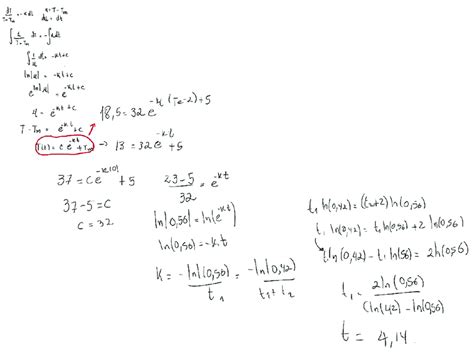 dt/T-Tm = -k dt   u = T - Tm
du = dt
∫ dt = -∫ k dt
∫ 1/u du = -kt+c
ln|u| = -kt+c
e^ln|u| = e^-kt+c
u = e^-kt+c
18,5 = 32e +5
T - Tm = e^-kt+c
T(t) = c e^-kt + Tm → 13 = 32e^-kt +5
37 = ce^-k(0) + 5
37-5 = c
c = 32
23-5/32 = e^-kt
ln(0,56) = ln(e^-kt)
ln(0,56) = -k.t
k = -ln(0,56)/t1 = -ln(0,42)/t1+t2
t1 ln(0,42) = (t1+2) ln(0,56)
t1 ln(0,42) = t1 ln(0,56) + 2 ln(0,56)
t ln(0,42) - t1 ln(56) = 2 ln(0,56)
t1 = 2 ln(0,56)/(ln(42) - ln(0,56)
t = 4,14